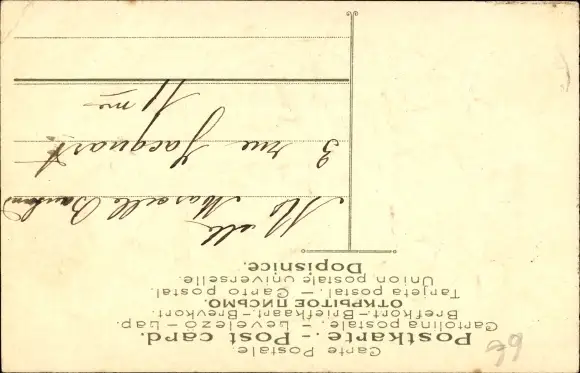 Carte Postale.
Postkarte. - Post card.
Cartolina postale. - Levelező-Lap.
Brefkort. - Briefkaart. - Brevkort.
ОТКРЫТОЕ ПИСЬМО.
Tarjeta postal. - Carto postal.
Union postale universelle.
Dopisnice.
Melle Marcelle
3 rue Jacquart
11 me